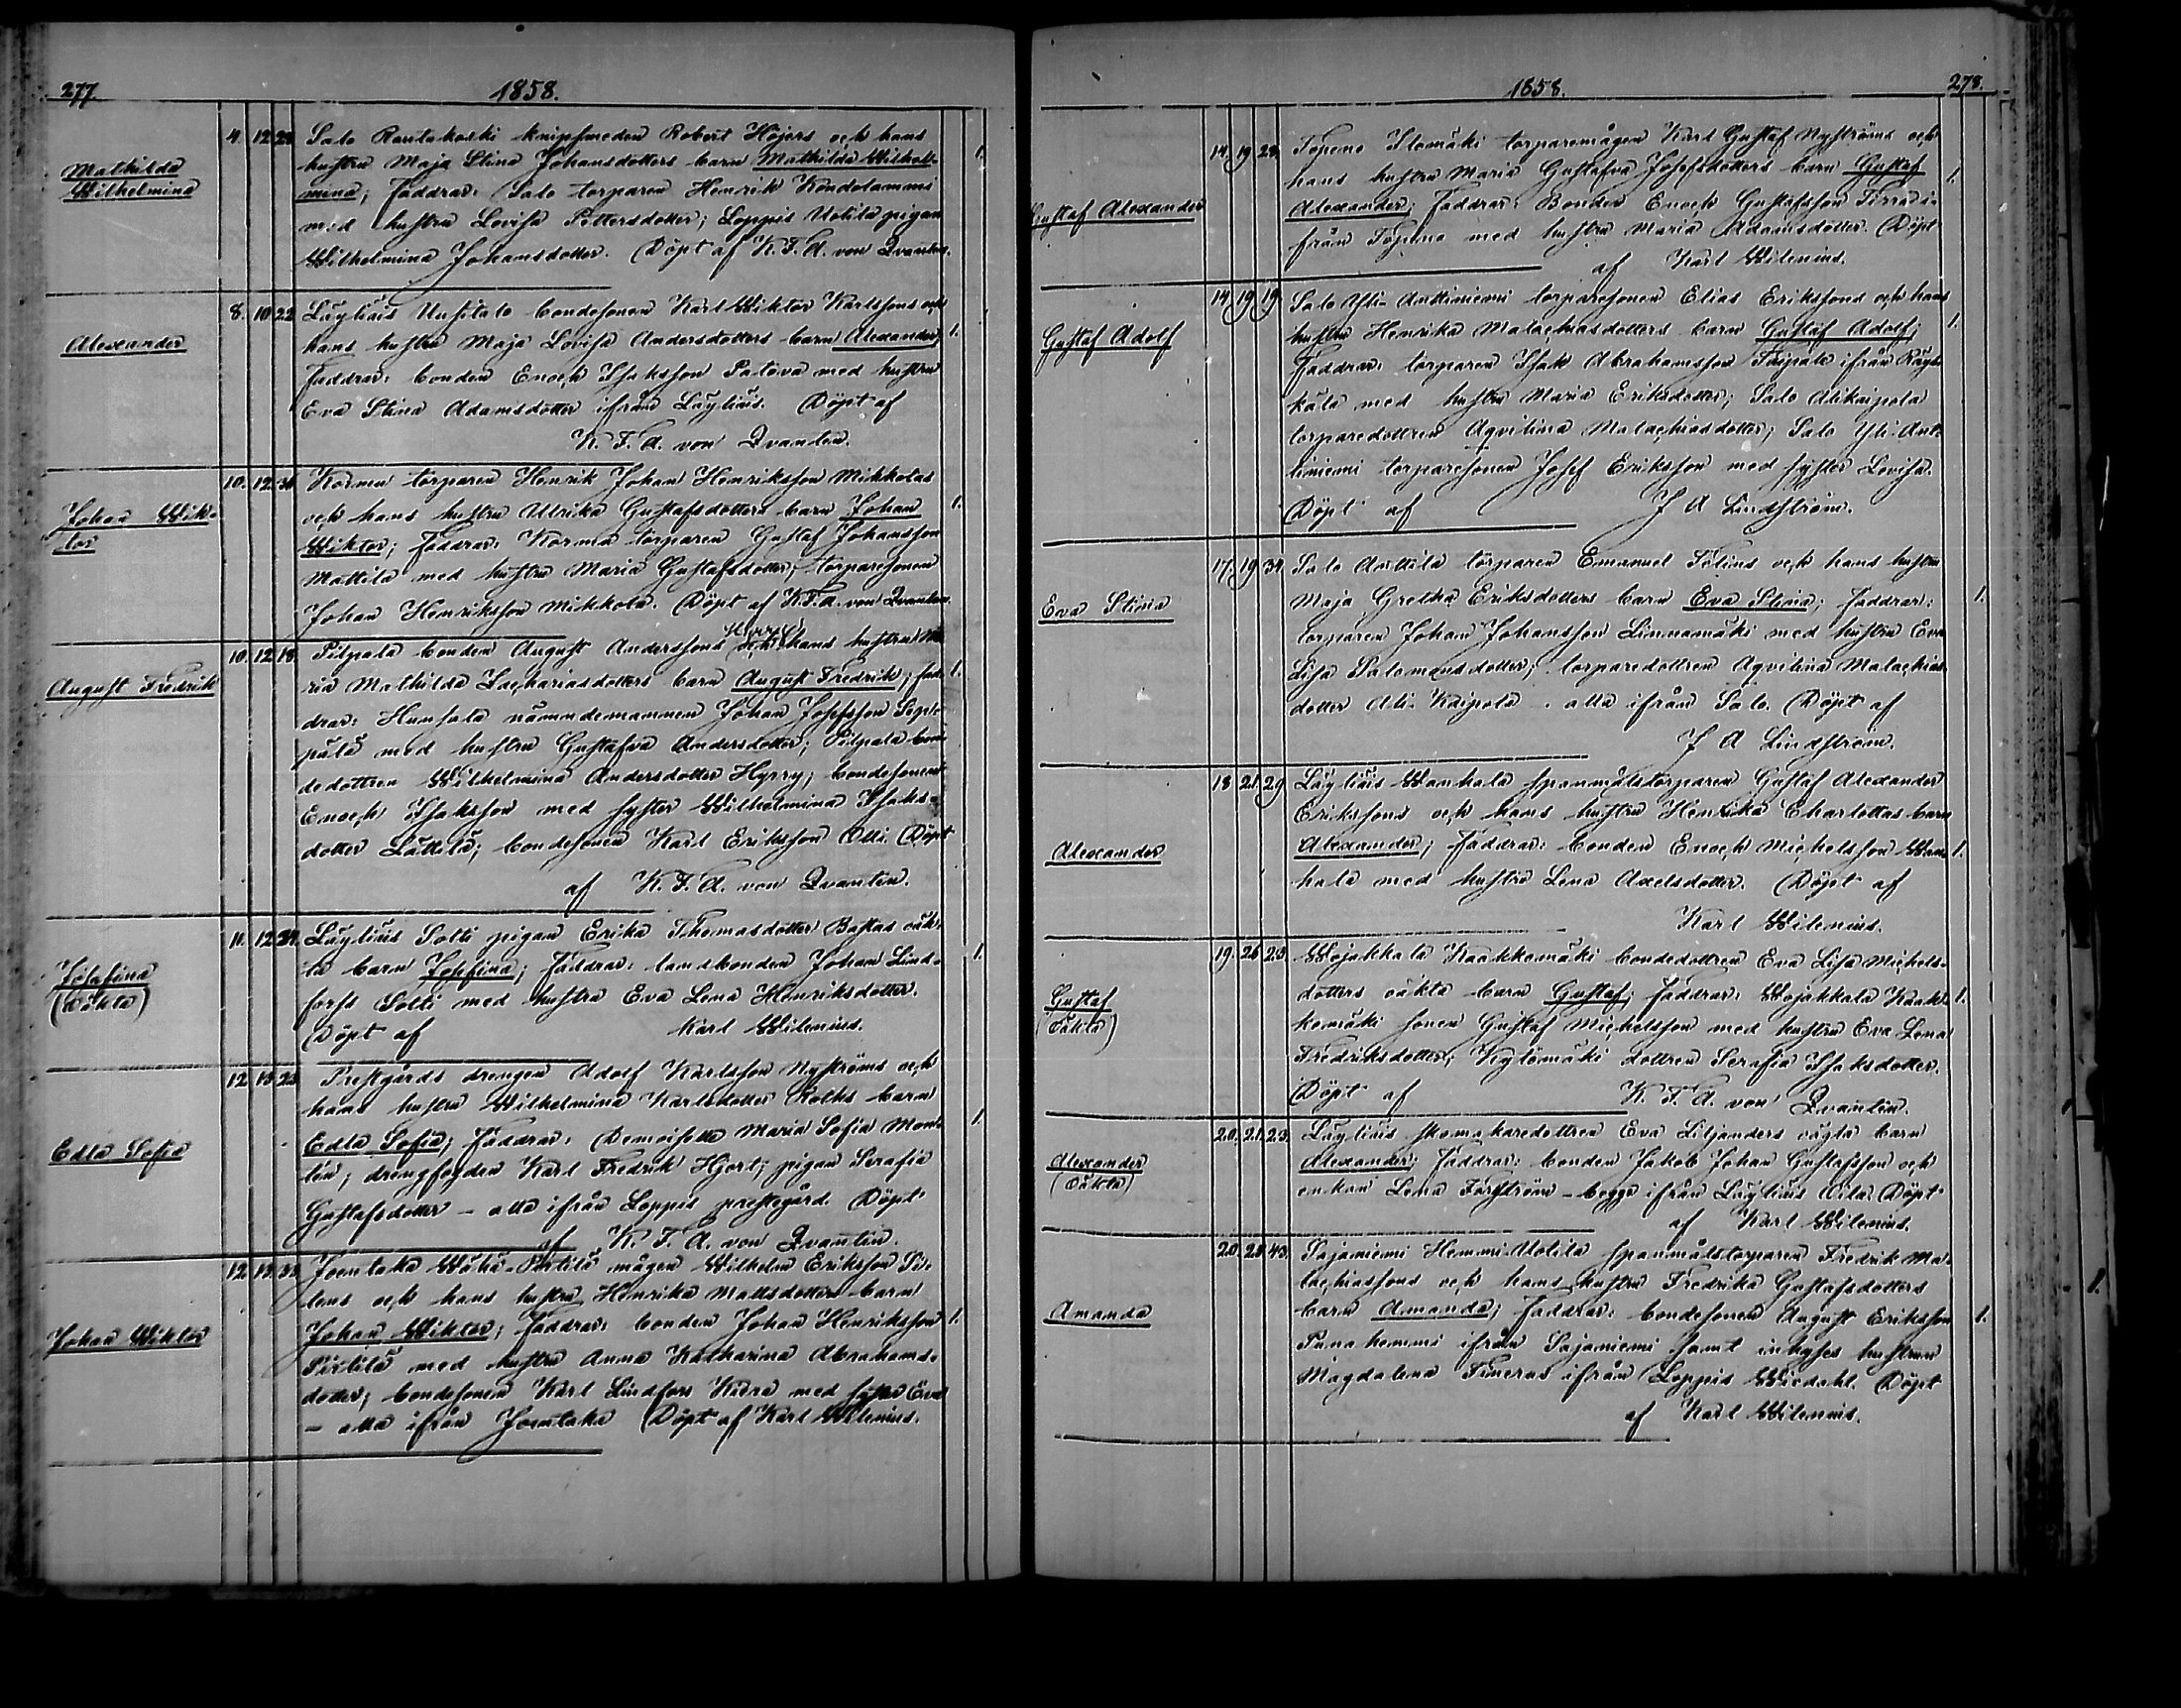 277.
1858.
Mathilda
Wilhelmina
4. 12. 28. Salo Rautakoski knipsmeden Robert Höjers och hans
hustru Maja Stina Johansdotters barn Mathilda Wilhel-
mina; Faddrar: Salo torparen Henrik Kondolammi
med hustru Lovisa Pettersdotter; Loppis Uotila pigan
Wilhelmina Johansdotter. Döpt af K. F. A. von Qvanten.
1.
Alexander
8. 10. 22. Läyliäis Uusitalo bondesonen Karl Wiktor Karlssons och
hans hustru Maja Lovisa Andersdotters barn Alexander; 1.
Faddrar: bonden Enoch Isaksson Patova med hustru
Eva Stina Adamsdotter ifrån Läyliäis. Döpt af
K. F. A. von Qvanten.
Johan Wik-
tor
10. 12. Kormu torparen Henrik Johan Henriksson Mikkolas
och hans hustru Ulrika Gustafsdotters barn Johan 1.
Wiktor; Faddrar: Kormu torparen Gustaf Johansson
Mattila med hustru Maria Gustafsdotter; torparesonen
Johan Henriksson Mikkola. Döpt af K. F. A. von Qvanten.
August Fredrik
10. 12. 18. Pilpala bonden August Anderssons Hyrry och hans hustru Ma-
ria Mathilda Zachariasdotters barn August Fredrik; fad- 1.
drar: Hunsala nämndemannen Johan Josefsson Sep-
pälä med hustru Gustafva Andersdotter; Pilpala bon-
dedottren Wilhelmina Andersdotter Hyrry; bondesonen
Enoch Isaksson med syster Wilhelmina Isaks-
dotter Lättilä; bondesonen Karl Eriksson Olli. Döpt
af K. F. A. von Qvanten.
Josefina
(Oäkta)
11. 12. Läyliäis Solti pigan Erika Thomasdotter Bastas oäk-
ta barn Josefina; Faddrar: landbonden Johan Lind- 1.
forss Solti med hustru Eva Lena Henriksdotter.
Döpt af Karl Wilenius.
Edla Sofia
12. 13. 23. Prestgårds drengen Adolf Karlsson Nyströms och
hans hustru Wilhelmina Karlsdotter Roths barn
Edla Sofia; Faddrar: Demoiselle Maria Sofia Mon- 1.
tin; drengfogden Karl Fredrik Hjort; pigan Serafia
Gustafsdotter - alla ifrån Loppis prestegård. Döpt
af K. F. A. von Qvanten.
Johan Wiktor
12. 13. 33. Joentaka Wähä-Pirtilä mågen Wilhelm Eriksson Si-
lens och hans hustru Henrika Mattsdotters barn
Johan Wiktor; Faddrar: bonden Johan Henriksson 1.
Pirtilä med hustru Anna Katharina Abrahams-
dotter; bondesonen Karl Lindfors Kiera med syster Eva
- alla ifrån Joentaka Döpt af Karl Wilenius.
1858.
278.
Gustaf Alexander
14. 19. 28. Topeno Ilomäki torparemågen Karl Gustaf Nyströms och
hans hustru Maria Gustafva Josefsdotters barn Gustaf 1.
Alexander; Faddrar: Bonden Enoch Gustafsson
från Topeno med hustru Maria Adamsdotter. Döpt
af Karl Wilenius.
Gustaf Adolf
14. 19. 19. Salo Yli-Anttiniemi torparesonen Elias Erikssons och hans
hustru Henrika Malachiasdotters barn Gustaf Adolf; 1.
Faddrar: torparen Isak Abrahamsson Taipale ifrån Räys-
kälä med hustru Maria Eriksdotter; Salo Alikaipola
torparedottren Aqvilina Malachiasdotter; Salo Yli-Ant-
tiniemi torparesonen Josef Eriksson med syster Lovisa.
Döpt af J A Lindström.
Eva Stina
17. 19. 34. Salo Anttila torparen Emanuel Sölins och hans hustru
Maja Gretha Eriksdotters barn Eva Stina; Faddrar: 1.
torparen Johan Johansson Linnamäki med hustru Eva
Lisa Salomonsdotter; torparedottren Aqvilina Malachias-
dotter Ali-Kaipola - alla ifrån Salo. Döpt af
J A Lindström.
Alexander
18. 21. 29. Läyliäis Wanhala spanmålstorparen Gustaf Alexander
Erikssons och hans hustru Henrika Charlottas barn
Alexander; Faddrar: bonden Enoch Michelsson Wan- 1.
hala med hustru Lena Axelsdotter. Döpt af
Karl Wilenius.
Gustaf
(Oäkta)
19. 26. 23. Wojakkala Kaakkomäki bondedottren Eva Lisa Michels-
dotters oäkta barn Gustaf; Faddrar: Wojakkala Kaak- 1.
komäki sonen Gustaf Michelsson med hustru Eva Lena
Fredriksdotter; Kylömäki dottren Serafia Isaksdotter.
Döpt af K. F. A. von Qvanten.
Alexander
(Oäkta)
20. 21. 23. Läyliäis skomakaredottren Eva Liljanders oägta barn
Alexander; Faddrar: bonden Jakob Johan Gustafsson och
enkan Lena Forsström - begge ifrån Läyliäis Döpt
af Karl Wilenius.
Amanda
20. 43. Sajaniemi Hemmi-Uotila spanmålstorparen Fredrik Ma-
lachiassons och hans hustru Fredrika Gustafsdotters
barn Amanda; Faddrar: bondesonen August Eriksson 1.
Punahemmi ifrån Sajaniemi samt inhyses hustrun
Magdalena ifrån Loppis Wiedahl. Döpt
af Karl Wilenius.
1.